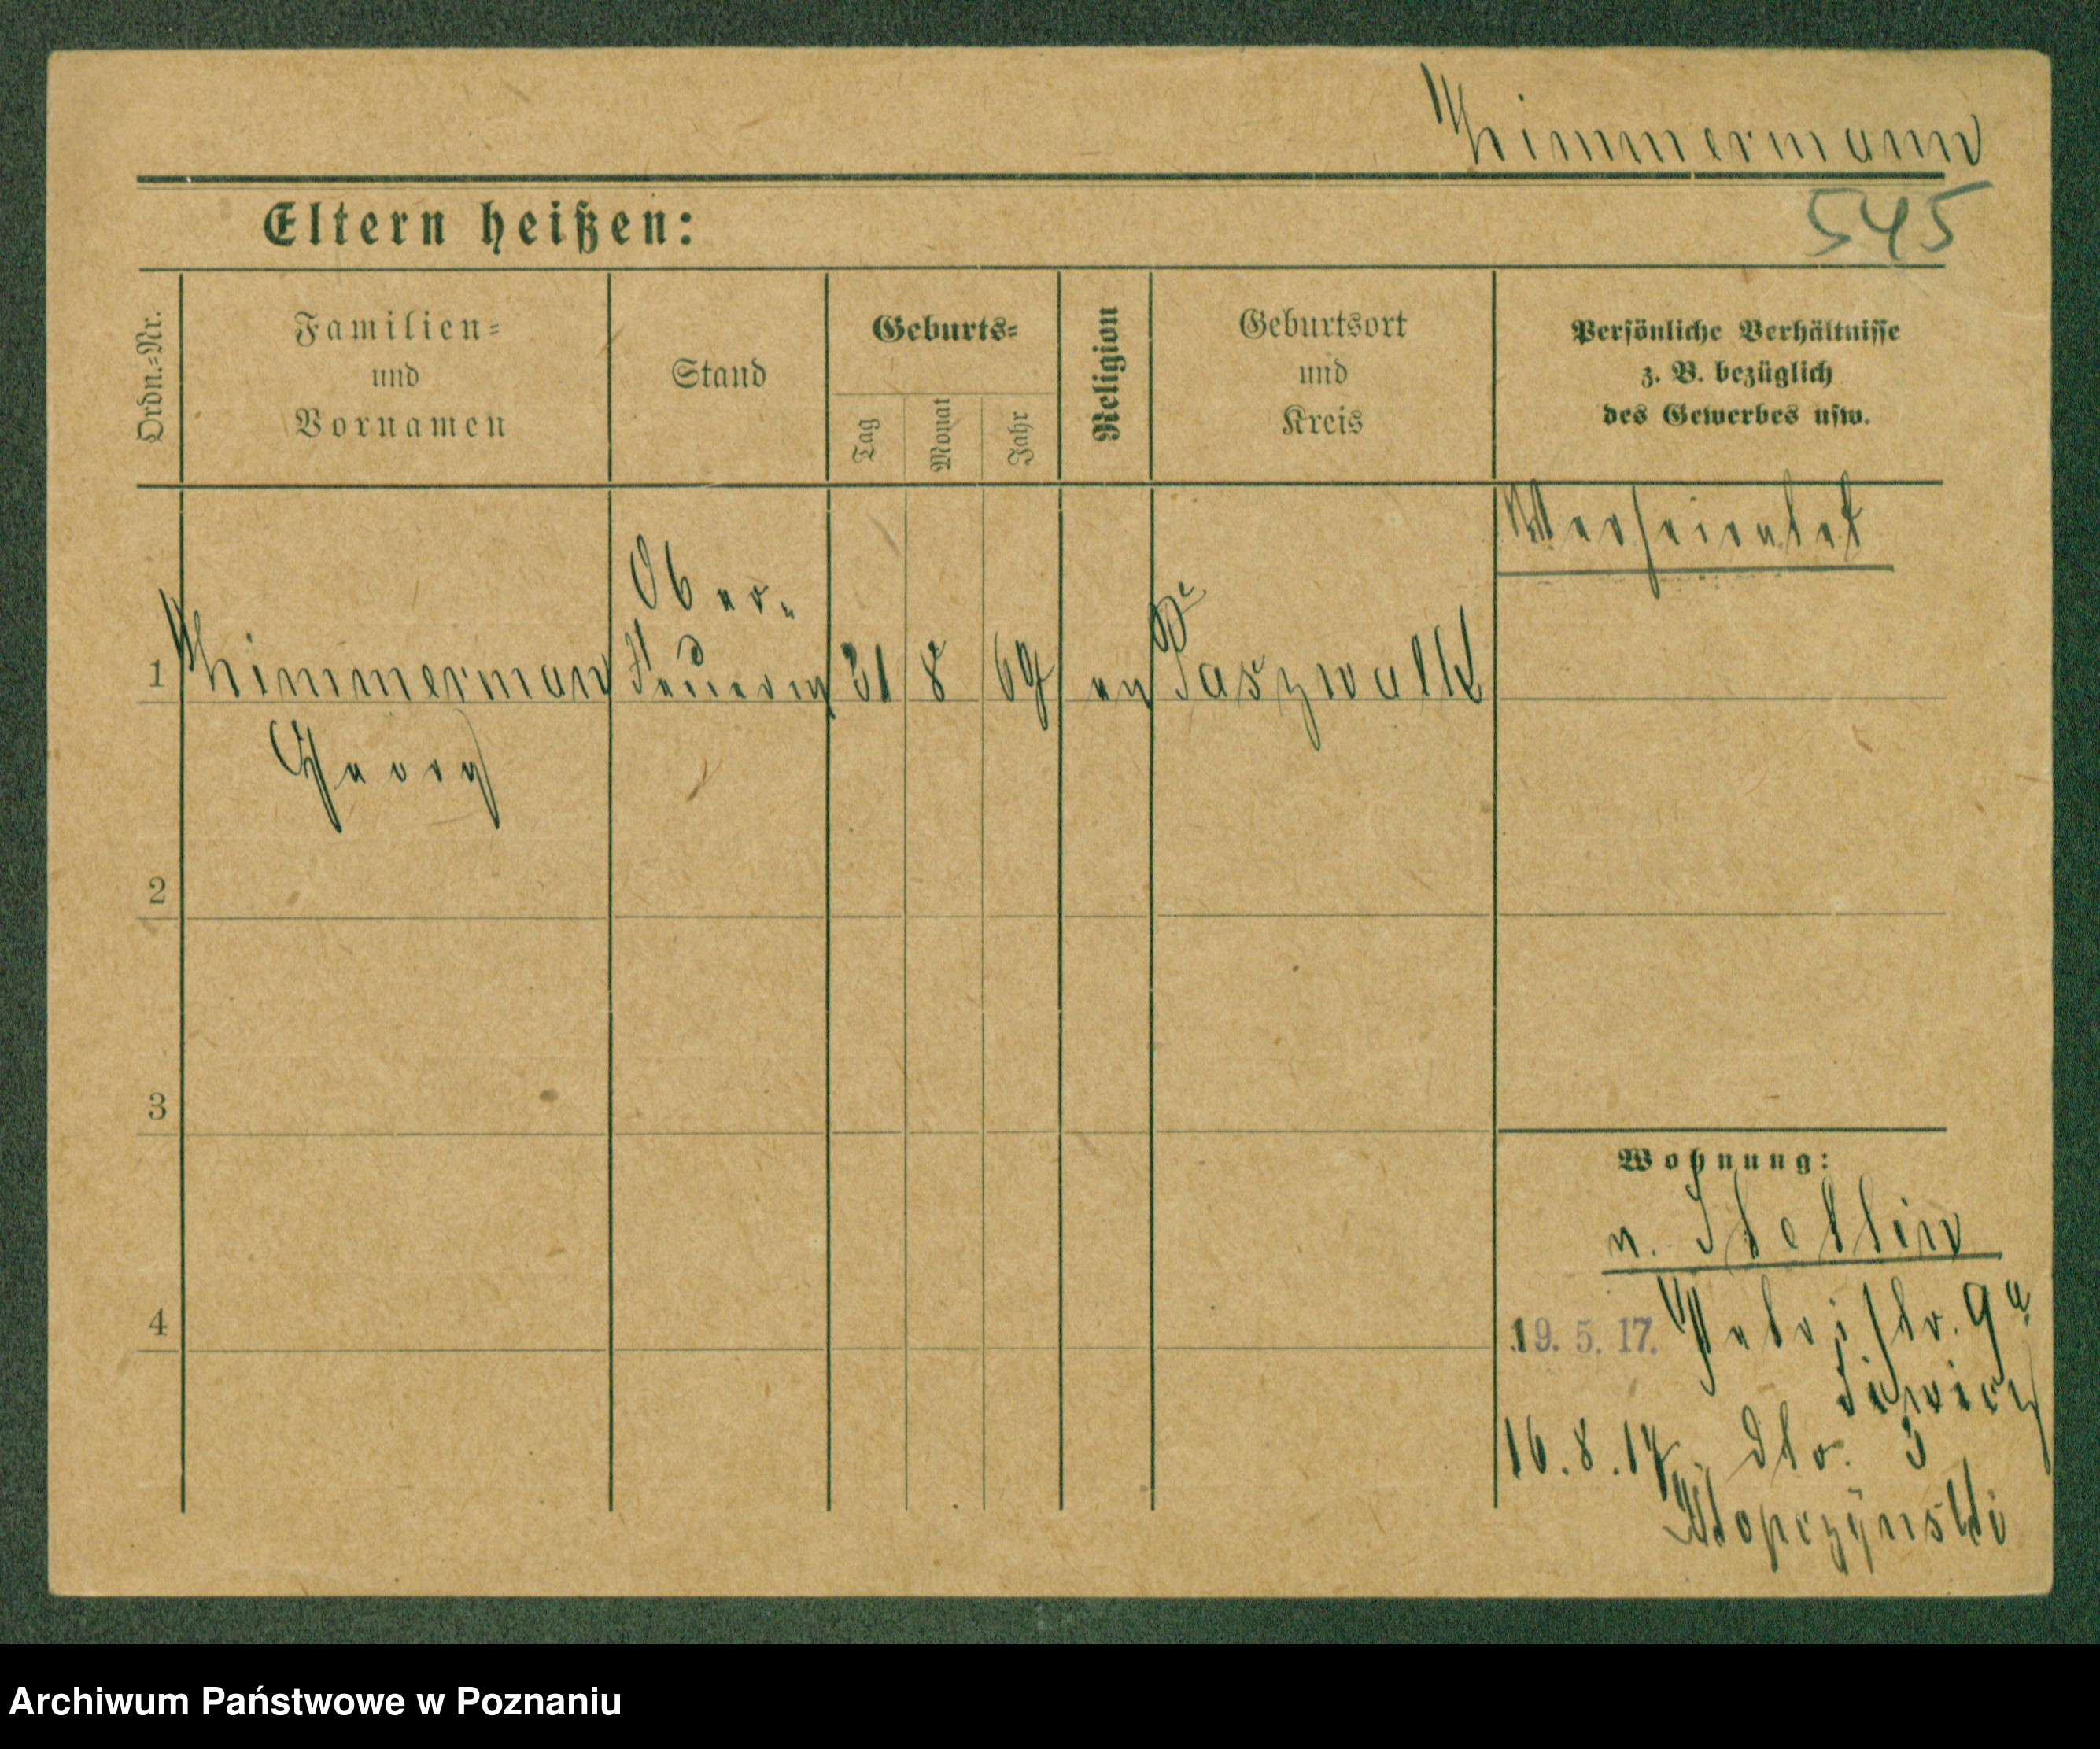 Zimmermann
545
Eltern heißen:
Ordn.-Nr.
Familien-
und
Vornamen
Stand
Geburts-
Tag
Monat
Jahr
Religion
Geburtsort
und
Kreis
Persönliche Verhältnisse
z. B. bezüglich
des Gewerbes usw.
Verheiratet
1
Zimmermann
Georg
Ober-
31
8
69
ev
Paszwalk
2
3
4
Wohnung:
v. Stettin
19. 5. 17. Petristr. 9a
16. 8. 17. Str. 3
Klopczynski
Archiwum Państwowe w Poznaniu